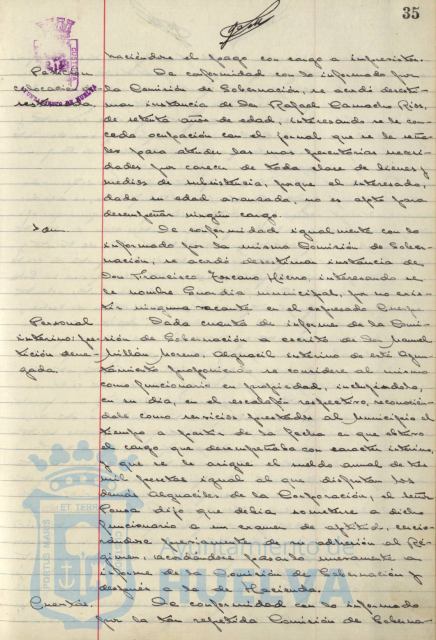 35
haciéndose el pago con cargo a imprevistos.
Petición De conformidad con lo informado por
colocación la Comisión de Gobernación, se acordó desesti-
mar instancia de Don Rafael Camacho Ríos,
de setenta años de edad, interesando se le con-
ceda ocupación con el jornal que se le seña-
le para atender las mas perentorias necesi-
dades por carecer de toda clase de bienes y
medios de subsistencia, porque el interesado,
dada su edad avanzada, no es apto para
desempeñar ningún cargo.
Idem De conformidad igualmente con lo
informado por la misma Comisión de Gober-
nación, se acordó desestimar instancia de
Don Francisco Toscano Hierro, interesando se
le nombre Guardia municipal, por no exis-
tir ninguna vacante en el expresado Cuerpo.
Personal Dada cuenta de informe de la Comi-
interino: pe- sión de Gobernación a escrito de Don Manuel
tición dene- Millán Moreno, Alguacil interino de este Ayun-
gada. tamiento proponiendo se considere al mismo
como funcionario en propiedad, incluyéndolo,
en su día, en el escalafón respectivo, reconocién-
dole como servicios prestados al Municipio el
tiempo a partir de la fecha en que obtuvo
el cargo que desempeñaba con caracter interino,
y que se le asigne el sueldo anual de tres
mil pesetas igual al que disfrutan los
demás Alguaciles de la Corporación, el señor
Pousa dijo que debia someterse a dicho
funcionario a un examen de aptitud, cercio-
rándose previamente de su adhesión al Ré-
gimen, acordándose pasarlo nuevamente a
informe de la Comisión de Gobernación y
después a la de Hacienda.
Cuentas. De conformidad con lo informado
por la tan repetida Comisión de Goberna-
PORTUS MARIS ET TERRAE
Ayuntamiento de
HUELVA